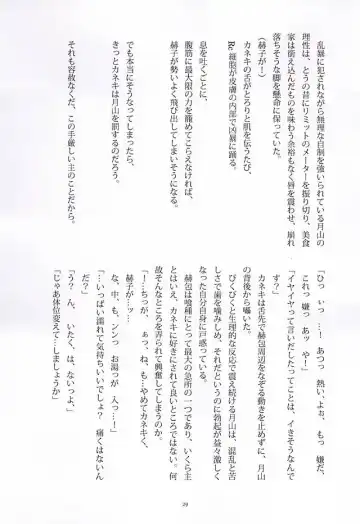 乱暴に犯されながら無理な自制を強いられている月山の
理性は、とうの昔にリミットのメーターを振り切り、美食
家は咥え込んだものを味わう余裕もなく唇を震わせ、崩れ
落ちそうな脚を懸命に保っていた。
(赫子が!)
カネキの舌がとろりと肌を伝うたび、
Rc細胞が皮膚の内部で凶暴に踊る。
腹筋に最大限の力を籠めながら
息を吐くごとに、
赫子が勢いよく飛び出してしまいそうになる。
でも本当にそうなってしまったら、
きっとカネキは月山を罰するのだろう。
それも容赦なくだ、この手厳しい主のことだから。
「ひっ ぃっ …! あっっ 熱い、よぉ、 もっ 嫌だ、
これっ 嫌っ あッ や!」
「イヤイヤって言いだしたってことは、イきそうなんで
す?」
カネキは舌先で赫包周辺をなぞる動きを止めずに、月山
の背後から囁いた。
びくびくと生理的な反応で震え続ける月山は、混乱と苦
しさで歯を噛みしめ、それだというのに勃起が益々激しく
なった自分自身に戸惑っている。
赫包は喰種にとって最大の急所の一つであり、いくら主
とはいえ、カネキに好きにされて良いところではない。何
故そんなところを弄られて興奮してしまうのか。
「!…ちっが、ぁっ、ね、も…やめてカネキく、
な、中、も、ンンっ お湯が 入っ…!」
「…いっぱい濡れて気持ちいいでしょ? 痛くはないん
だ?」
「う? ん、いたく、は、ないっ、よ、」
「じゃあ体位変えて…しましょうか」
29